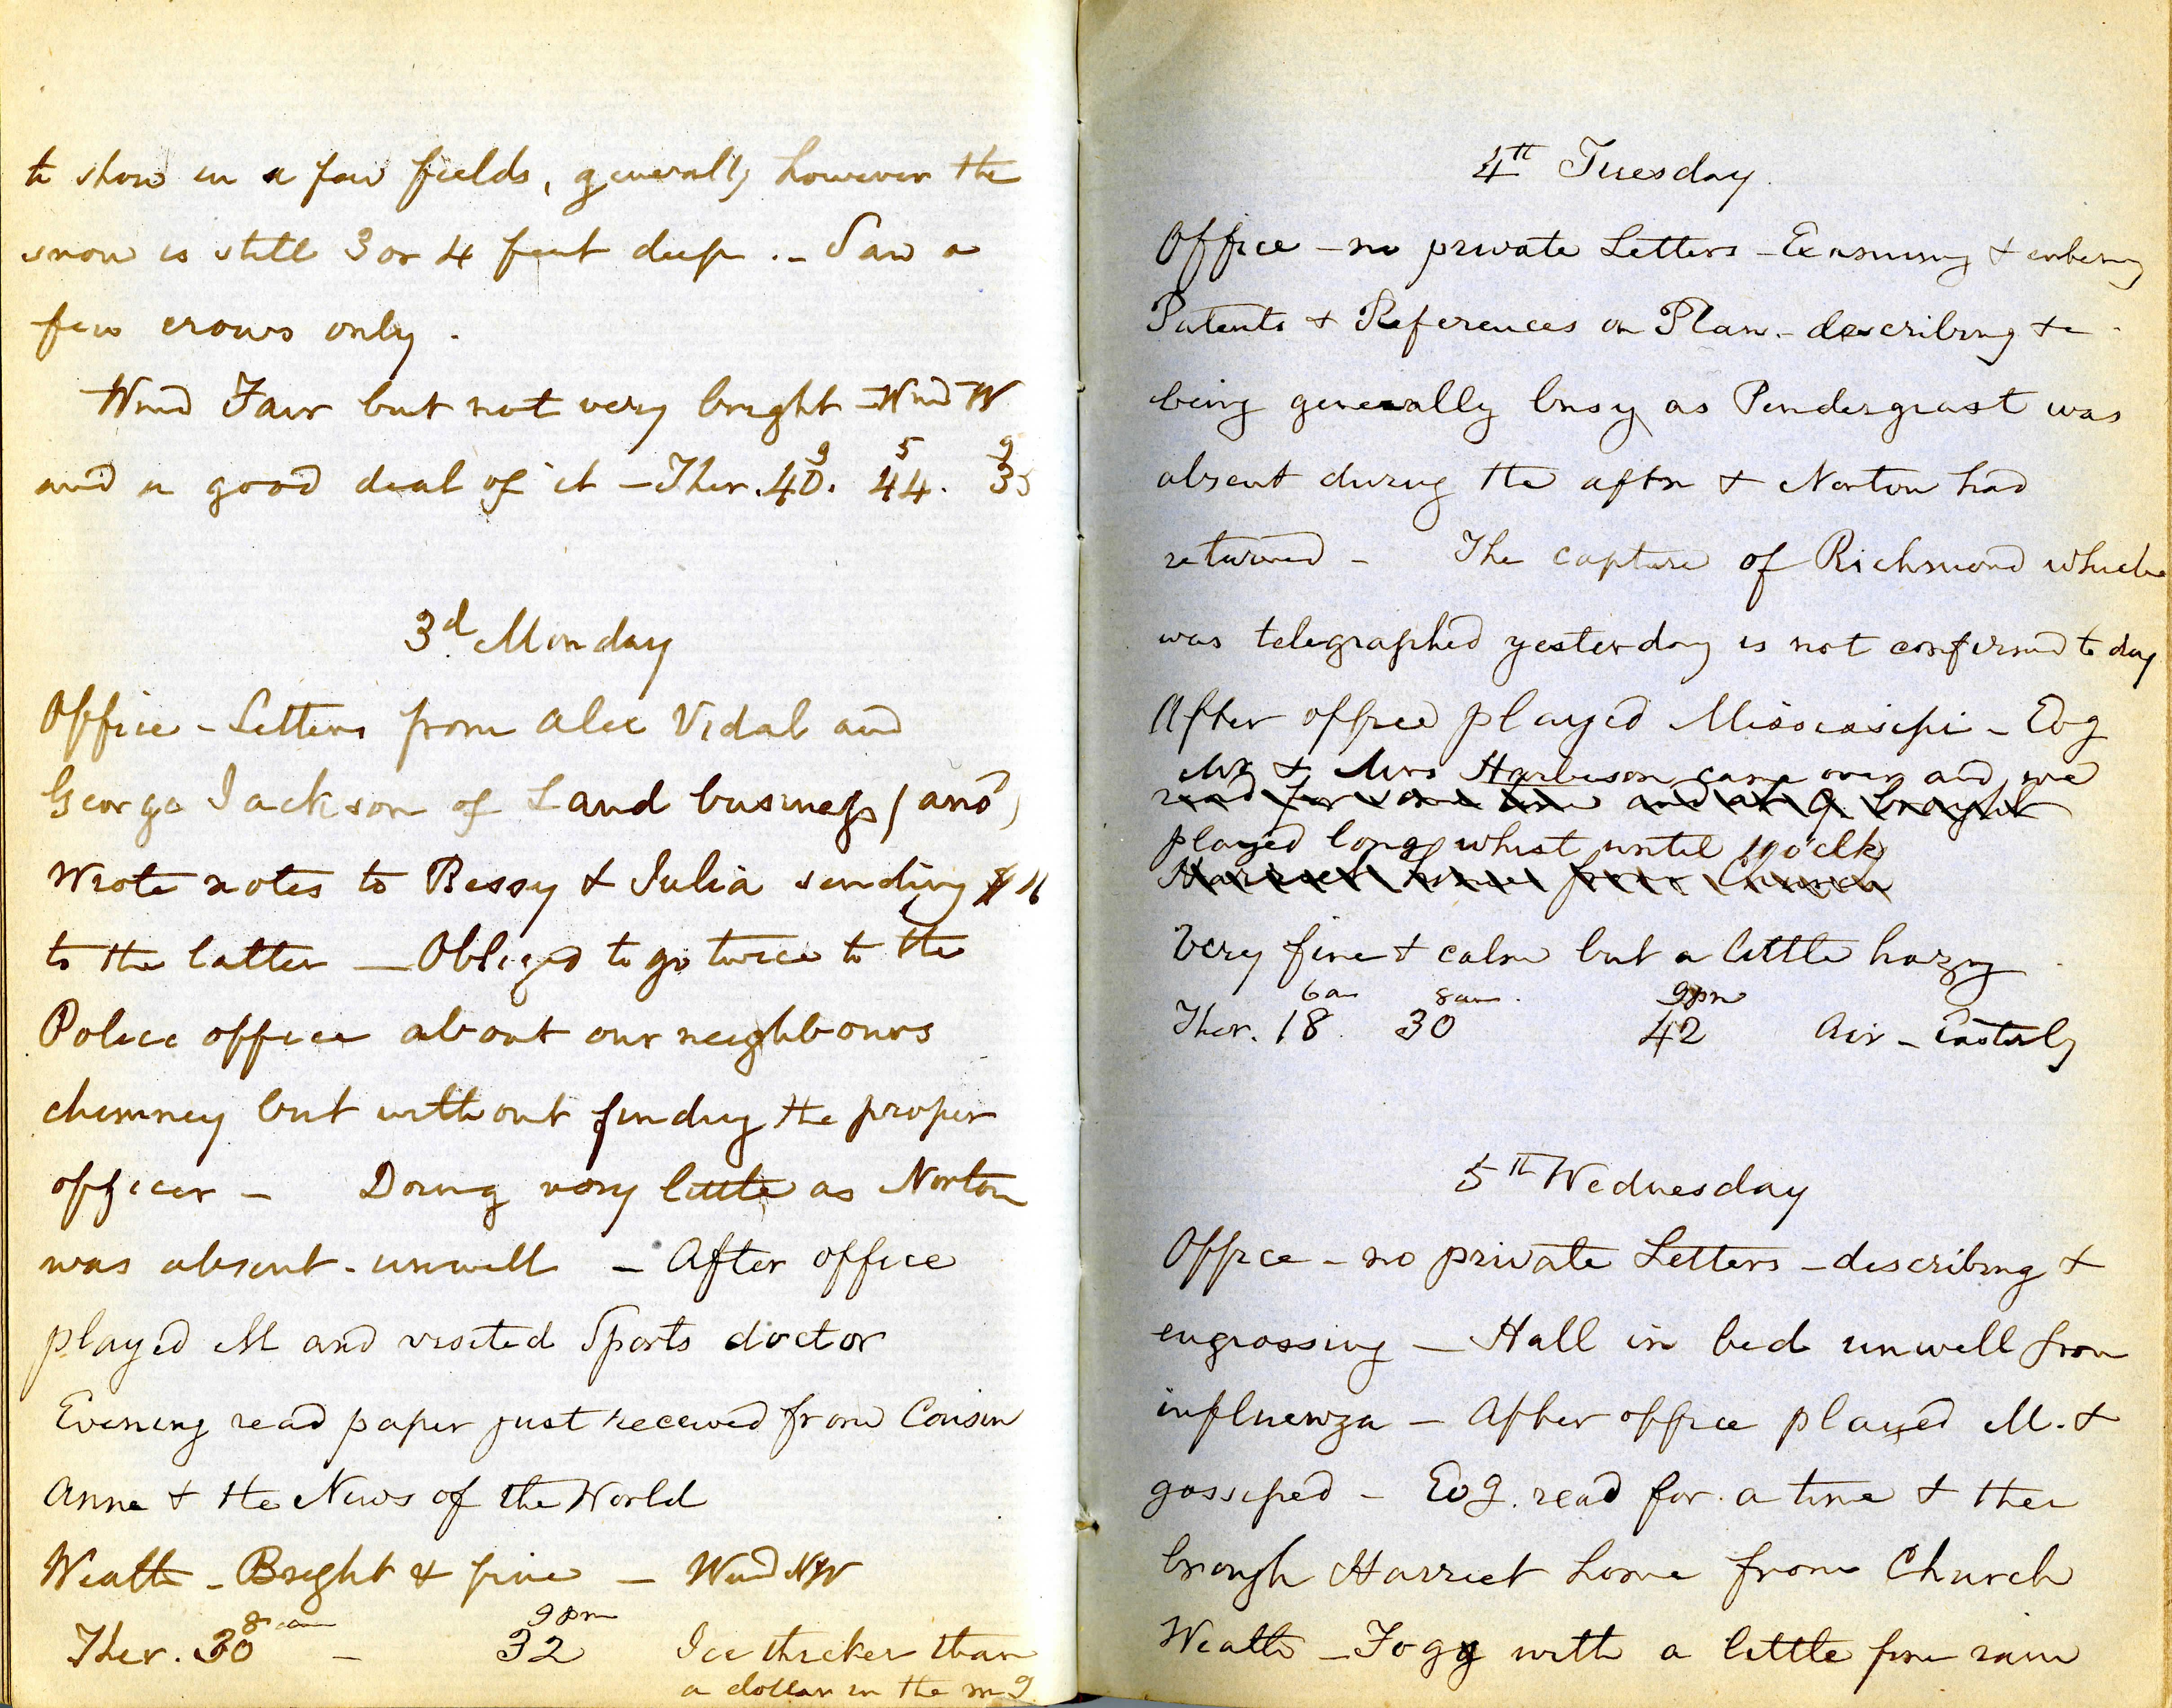 to show in a few fields, generally however the
snow is still 3 or 4 feet deep .- Saw a
few crows only .
Wind Fair but not very bright - Wind W
and a good deal of it - Ther. 40. 44. 35
9 5 9
3d Monday
Office - Letters from Alec Vidal and
George Jackson of Land business (and)
Wrote notes to Bessy & Julia sending $16
to the latter - Obliged to go twice to the
Police office about our neighbours
chimney but without finding the proper
officer - Doing very little as Norton
was absent - unwell - After office
played M and visited Sports doctor
Evening read paper just received from Cousin
Anne & the News of the World
Weath - Bright & fine - Wind NW
8 am 9 pm
Ther. 30 - 32 Ice thicker than
a dollar in the mg
4th Tuesday
Office - no private Letters - Examining &
Patents & References on Plan - describing &c -
being generally busy as Pendergrast was
absent during the aftn & Norton had
returned - The capture of Richmond which
was telegraphed yesterday is not confirmed to day
After office played Mississipi - Evg
Mr & Mrs Harbeson came over and we
read for some time and at 9 brought
played long whist until 10 o'clk
Harriet home from Church
Very fine & calm but a little hazy
6 am 8 am . 9 pm
Ther. 18. 30 42 Air - Easterly
5th Wednesday
Office - no private Letters - describing &
engrossing - Hall in bed unwell from
influenza - After office played M. &
gossiped - Evg. read for a time & then
brough Harriet home from Church
Weath - Fogy with a little fine rain